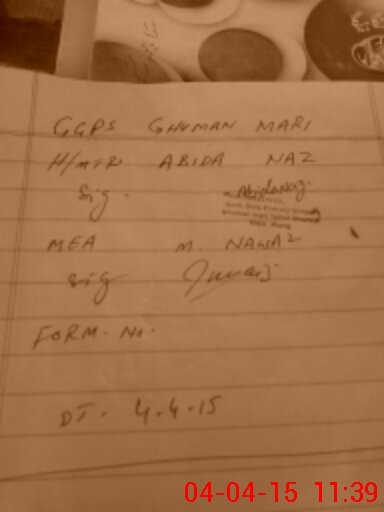 GGPS GHUMAN MARI
H/MTR ABIDA NAZ
Sig. Abida Naz
MEA M. NAWAZ
Sig
FORM. No.
DT. 4.4.15
04-04-15 11:39